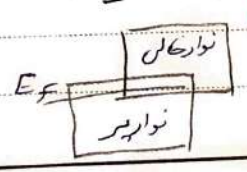 نوار خالی
E_F
نوار پر